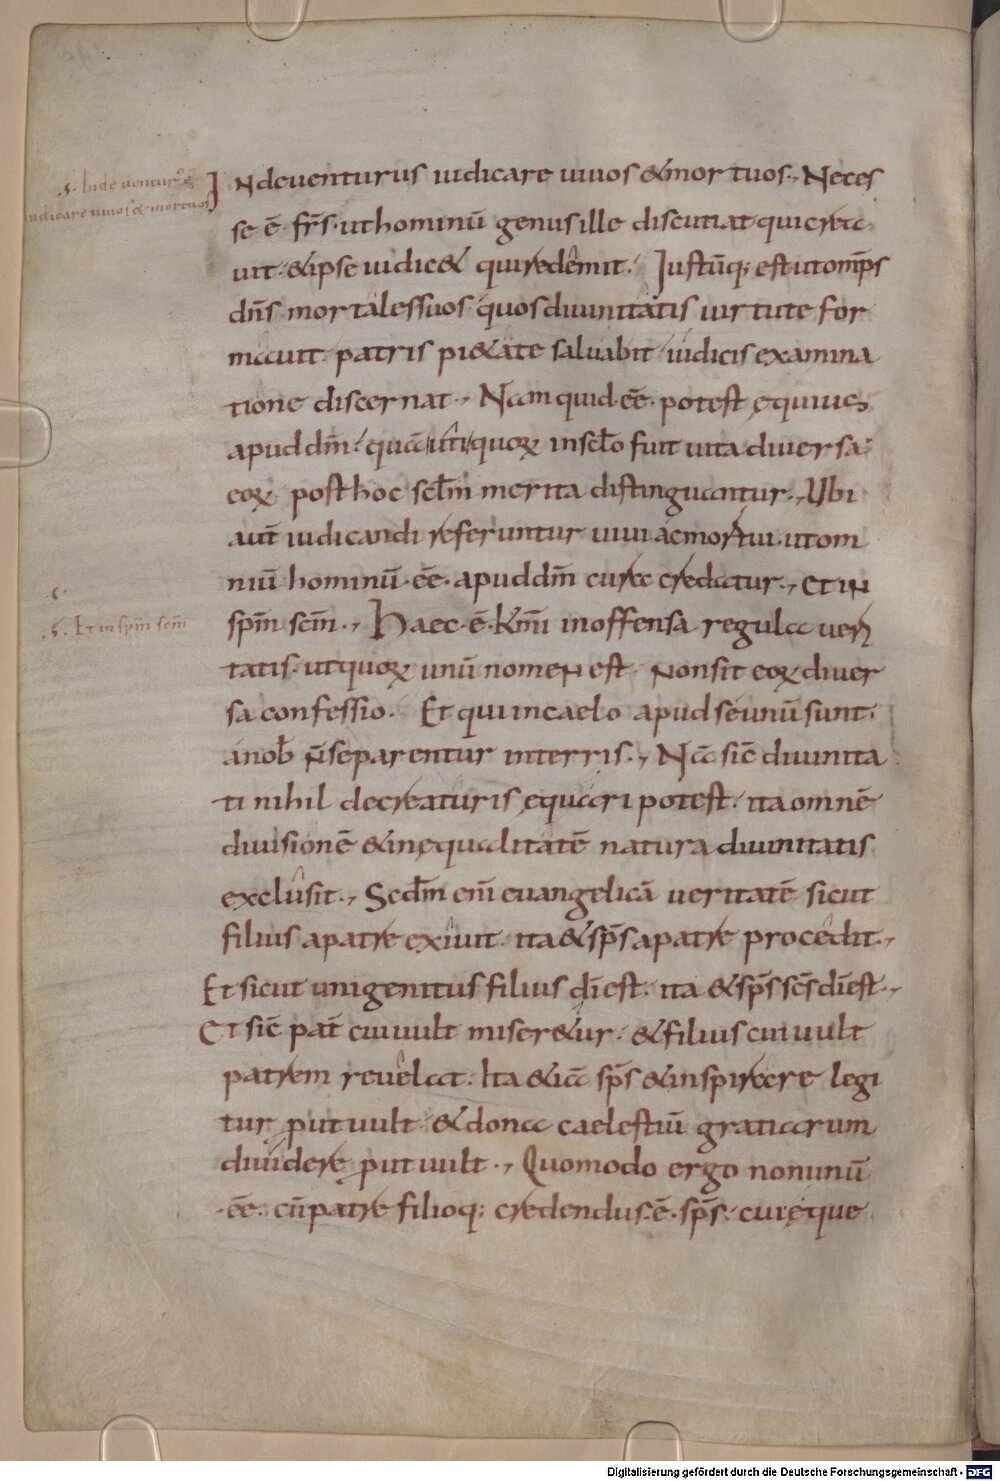 .s. Inde uentur᷒ ē
iudicare uiuos & mortuos
INdeuenturus iudicare uiuos & mortuos. Neces
se ē fr̄s. ut hominū genus ille discutiat qui crea
uit. & ipse iudic& qui redêmit. Justūq; est ut om̄ps
dn̄s mortales suos quos diuinitatis uirtute for
mauit patris pi&ate saluabit iudicis examina
tione discernat. Nam quid. ēē. potest ęquius
apud dm̄. quā uti quoꝝ in scl̄o fuit uita diuersa.
eoꝝ post hoc scl̄m merita distinguantur. Ubi
aut̄ iudicandi referuntur uiui ac mortui. ut om
niū hominū. ēē. apud dm̄ cura credatur. Et IN
.s. Et in spm̄ scm̄
spm̄ scm̄. Haec. ē. Km̄i inoffensa regula ueri
tatis. ut quoꝝ unū nomeN est Non sit eoꝝ diuer
sa confessio. Et qui in caelo apud se unū sunt.
a nob̄ n̄ separentur in terris. Nā sic̄ diuinita
ti nihil de creaturis ęquari potest. ita omnē
diuisionē & inęqualitatē natura diuinitatis
exclûsit. Scdm̄ eni̅ euangelicā ueritatē sicut
filius a patre exîuit. ita & sp̄s a patre procêdit.
Et sicut unigenitus filius dī est. ita & sp̄s sc̄s dī est.
Et sic̄ pat̄ cui uult miser&ur. & filius cui uult
patrem reuêlat. Ita & iā sp̄s & inspirare legi
tur prut uult & dona caelestiū gratiarum
diuidere prut uult. Quomodo ergo non unū
. ēē. cū patre filioq; credendus. ē. sp̄s. cur ęque